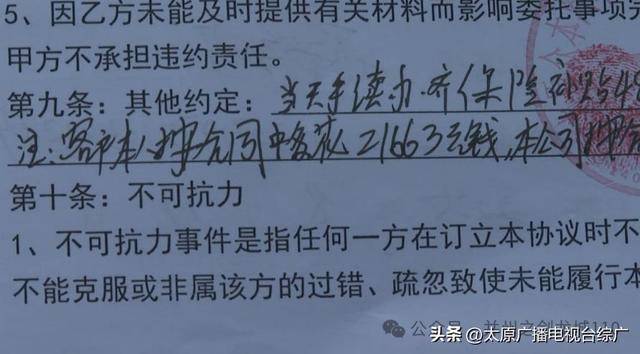 5、因乙方未能及时提供有关材料而影响委托事项
甲方不承担违约责任。
第九条：其他约定：当天手续办齐保险补贴
注：客户本人按合同中 21663元钱，本公司
第十条：不可抗力
1、不可抗力事件是指任何一方在订立本协议时不
不能克服或非属该方的过错、疏忽致使未能履行本
公众号
头条 @太原广播电视台综广